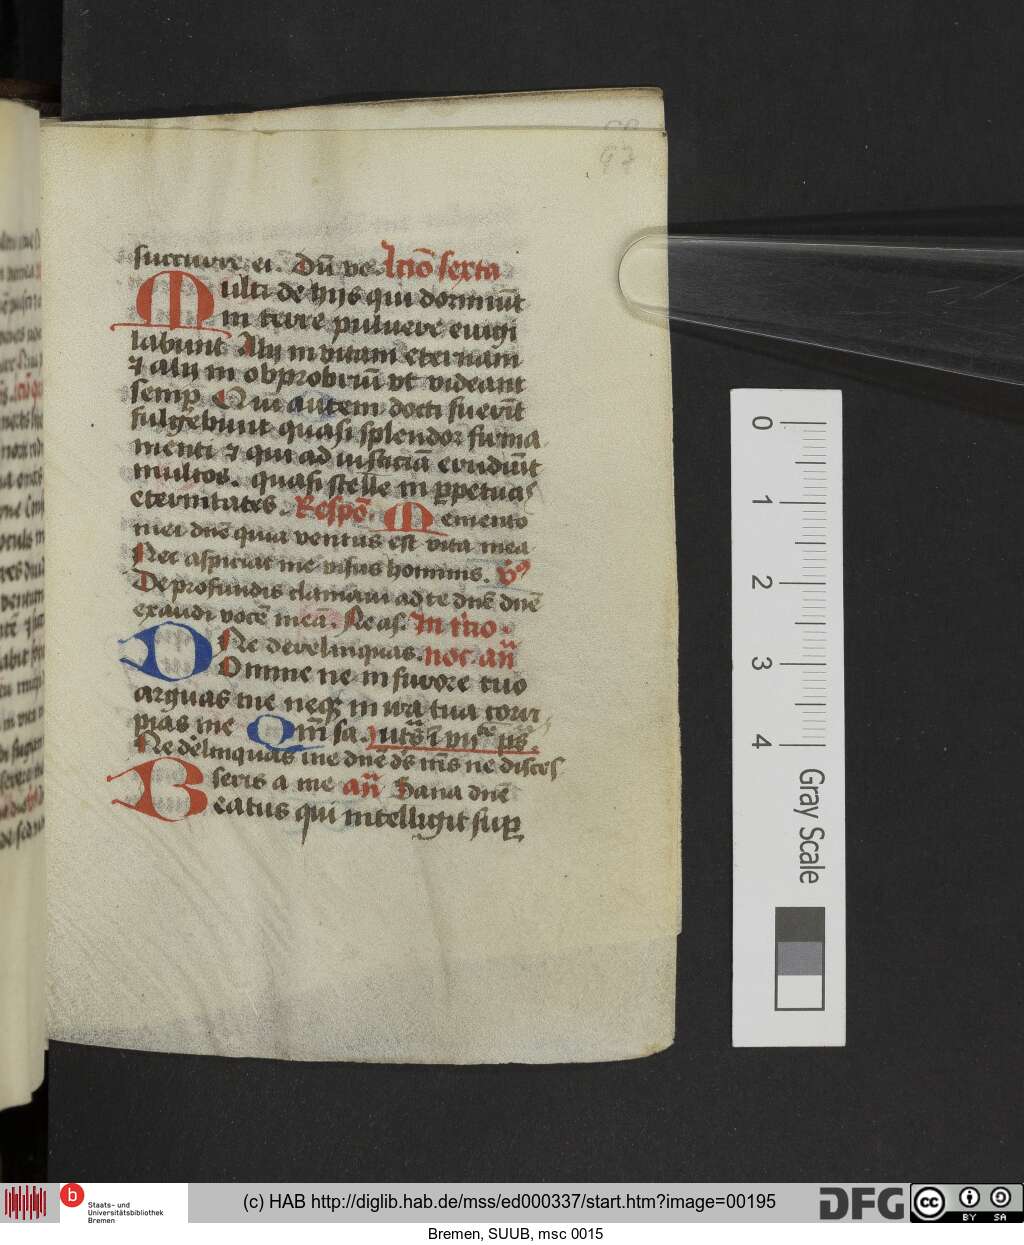 succurre ei. Dn̄ ve. Lctiō sexta
Multi de hijs qui dormiūt
in terre puluere euigi
labunt Alij in vitam eternam
⁊ alij in obprobriū vt videant
semꝑ Qui autem docti fuerīt
fulgebunt quasi splendor firma
menti ⁊ qui ad iusticiā erudiūt
multos. quasi stelle in ꝑpetuas
eternitates. Respō. Memento
mei dn̄e quia ventus est vita mea
Nec aspiciat me visus hominis. v̄s
De profundis clamaui ad te dn̄e dn̄e
exaudi vocē meā. Ne as. In tercio.
Ne derelinquas. noc. an̄
Domine ne in furore tuo
arguas me neqꝫ in ira tua corri
pias me Qm̄ sa. vii ps.
Ne delinquas me dn̄e ds̄ ms̄ ne disces
seris a me an̄ Sana dn̄e
Beatus qui intelligit suꝑ
0
1
2
3
4
Gray Scale
b Staats- und
Universitätsbibliothek
Bremen
(c) HAB http://diglib.hab.de/mss/ed000337/start.htm?image=00195
DFG
cc BY SA
Bremen, SUUB, msc 0015